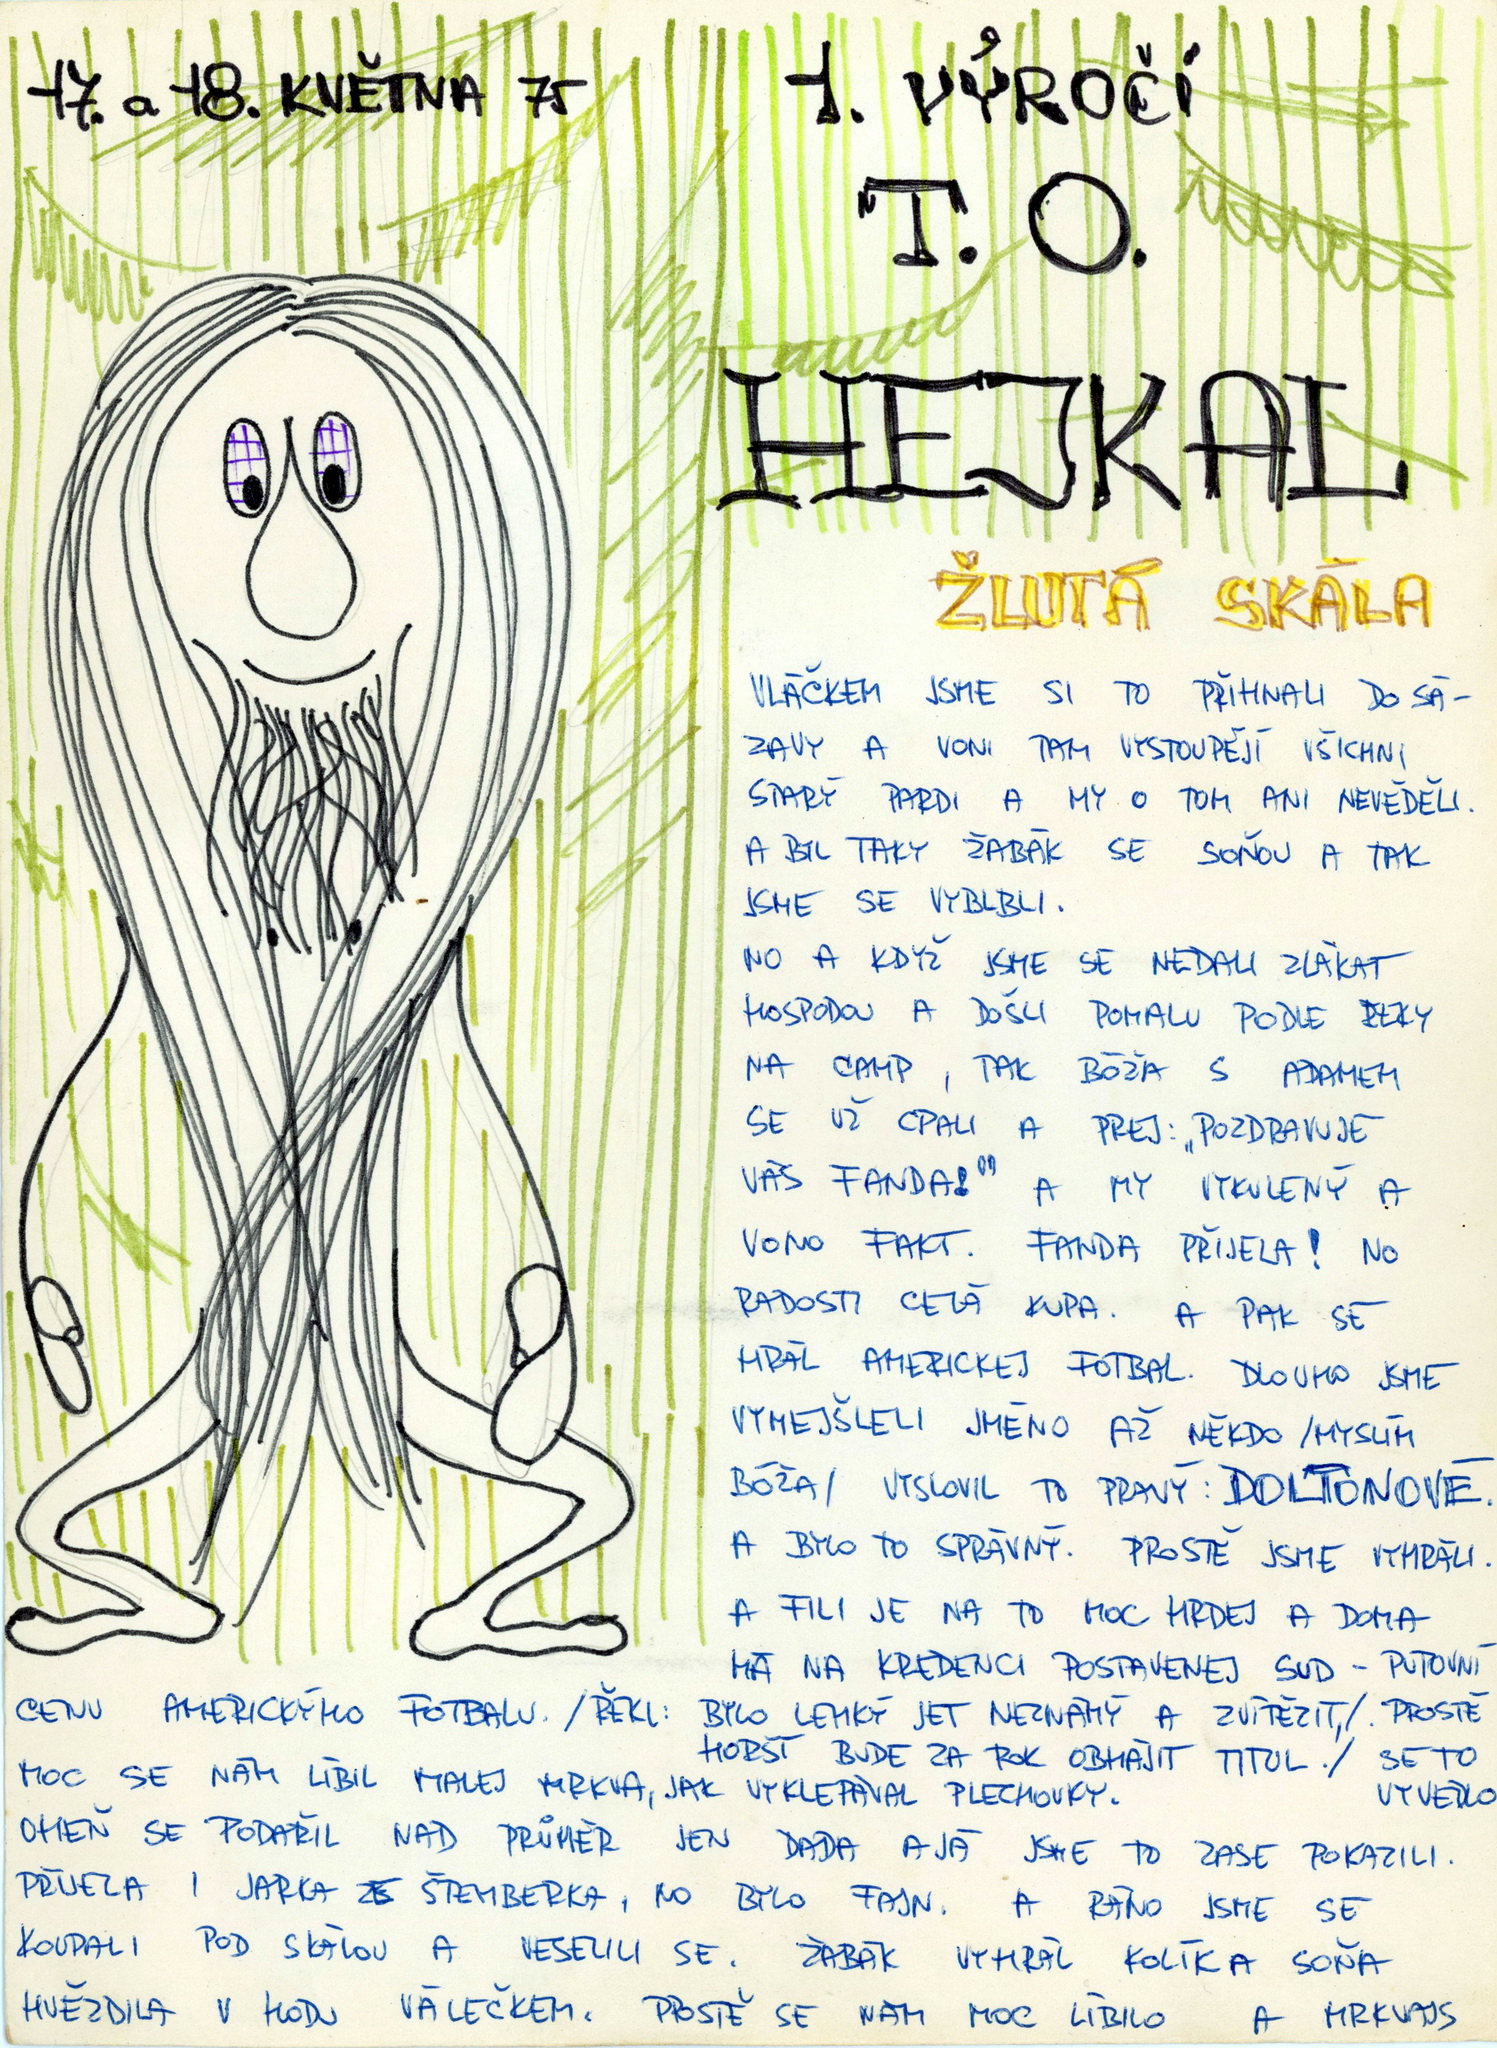 17. a 18. KVĚTNA 75
1. VÝROČÍ
T. O.
HEJKAL
ŽLUTÁ SKÁLA
VLÁČKEM JSME SI TO PŘIHNALI DO SÁ-
ZAVY A VONI TAM VYSTOUPĚJÍ VŠICHNI
STARÝ PARDI A MY O TOM ANI NEVĚDĚLI.
A BYL TAKY ŽABÁK SE SOŇOU A TAK
JSME SE VYBLBLI.
NO A KDYŽ JSME SE NEDALI ZLÁKAT
HOSPODOU A DOŠLI POMALU PODLE ŘEKY
NA CAMP, TAK BÓŽA S ADAMEM
SE UŽ CPALI A PREJ: „POZDRAVUJE
VÁS FANDA!" A MY VYKULENÝ A
VONO FAKT. FANDA PŘIJELA! NO
RADOSTI CELÁ KUPA. A PAK SE
HRÁL AMERICKEJ FOTBAL. DLOUHO JSME
VYMEJŠLELI JMÉNO AŽ NĚKDO /MYSLÍM
BÓŽA/ VYSLOVIL TO PRAVÝ: DOLTONOVÉ.
A BYLO TO SPRÁVNÝ. PROSTĚ JSME VYHRÁLI.
A FILI JE NA TO MOC HRDEJ A DOMA
MÁ NA KREDENCI POSTAVENEJ SUD - PUTOVNÍ
CENU AMERICKÝHO FOTBALU. /ŘEKL: BYLO LEHKÝ JET NEZNÁMÝ A ZVÍTĚZIT,/. PROSTĚ
HORŠÍ BUDE ZA ROK OBHÁJIT TITUL./ SE TO
MOC SE NÁM LÍBIL MALEJ MRKVA, JAK VYKLEPÁVAL PLECHOVKY. VYVEDLO
OHEŇ SE PODAŘIL NAD PRŮMĚR JEN DADA A JÁ JSME TO ZASE POKAZILI.
PŘIJELA I JARKA ZE ŠTEMBERKA, NO BYLO FAJN. A RÁNO JSME SE
KOUPALI POD SKÁLOU A VESELILI SE. ŽABÁK VYHRÁL KOLÍK A SOŇA
HVĚZDILA V HODU VÁLEČKEM. PROSTĚ SE NÁM MOC LÍBILO A MRKVAJS